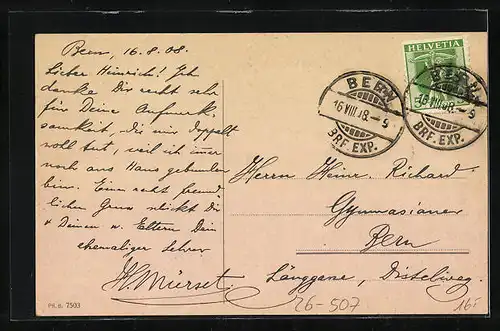 Bern, 16.8.08.
Lieber Heinrich! Ich
danke Dir recht sehr
für Deine Aufmerk-
samkeit, die mir doppelt
woll tut, weil ich immer
noch ans Haus gebunden
bin. Einen recht freund-
lichen Gruss schickt Dir
& Deinen w. Eltern Dein
ehemaliger Lehrer
H. Mürset.
PH. B. 7503
HELVETIA
BERN
16 VIII 08.– 9
BRF. EXP.
BERN
16 VIII 08.– 9
BRF. EXP.
Herrn Heinr. Richard
Gymnasianer
Bern
Länggasse, Distelweg.
26-507
16F